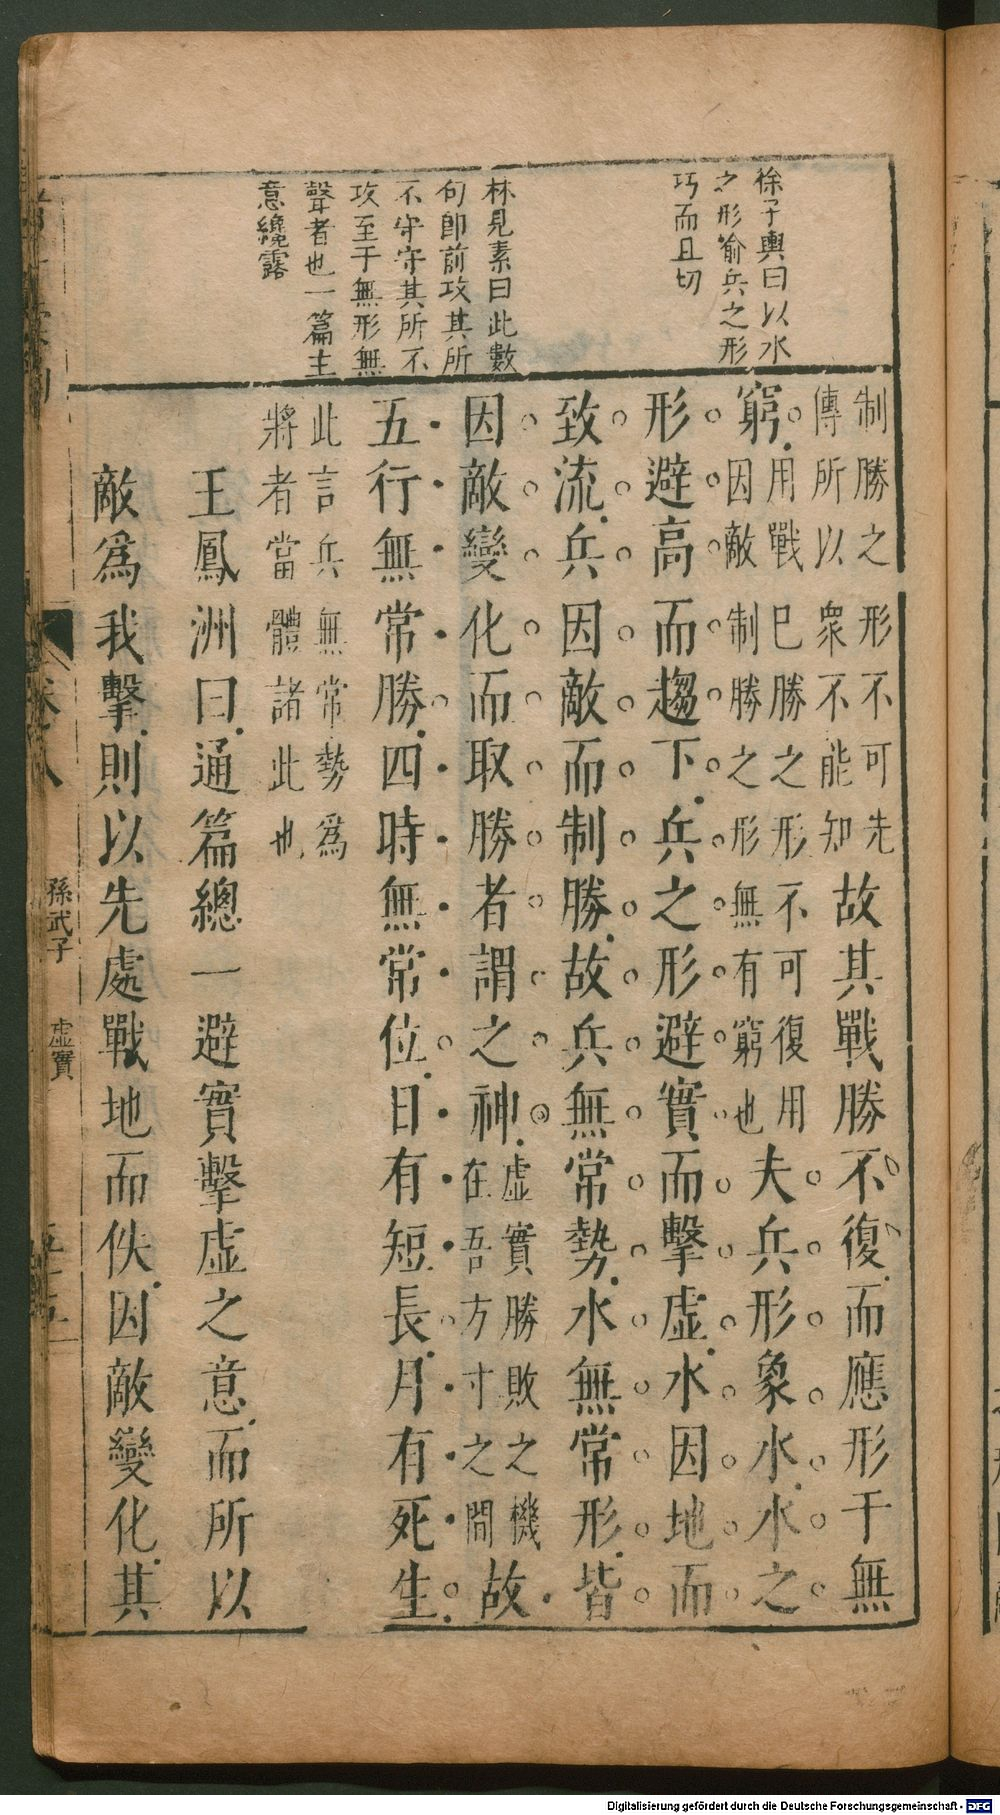 徐子輿曰以水
之形喻兵之形
巧而且切
林見素曰此數
句卽前攻其所
不守守其所不
攻至于無形無
聲者也一篇主
意纔露
制勝之形不可先
傳所以衆不能知故其戰勝不復而應形于無
窮用戰已勝之形不可復用
因敵制勝之形無有窮也夫兵形象水水之
形避高而趨下兵之形避實而擊虛水因地而
致流兵因敵而制勝故兵無常勢水無常形皆
因敵變化而取勝者謂之神虛實勝敗之機
在吾方寸之間故
五行無常勝四時無常位日有短長月有死生
此言兵無常勢爲
將者當體諸此也
王鳳洲曰通篇總一避實擊虛之意而所以
敵爲我擊則以先處戰地而佚因敵變化其
孫武子
虛實
Digitalisierung gefördert durch die Deutsche Forschungsgemeinschaft - DFG